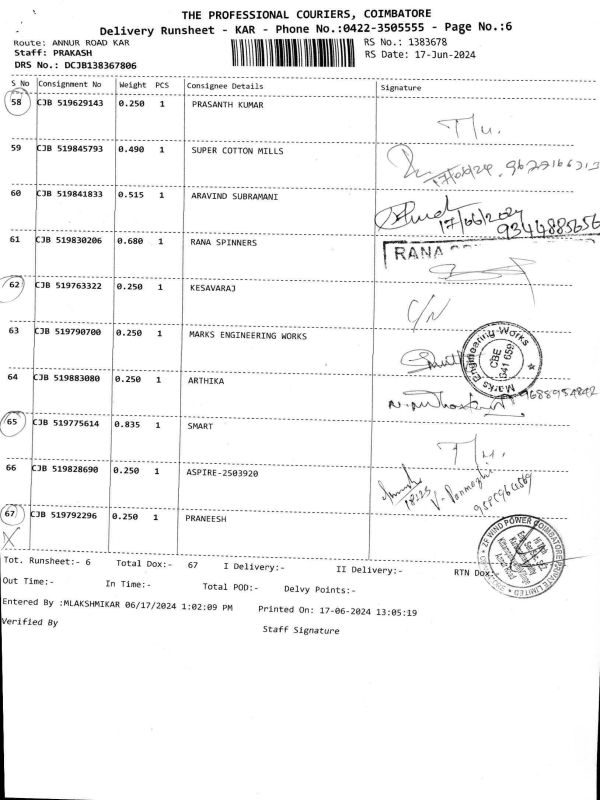 THE PROFESSIONAL COURIERS, COIMBATORE
Delivery Runsheet - KAR - Phone No.:0422-3505555 - Page No.:6
Route: ANNUR ROAD KAR RS No.: 1383678
Staff: PRAKASH RS Date: 17-Jun-2024
DRS No.: DCJB138367806
S No Consignment No Weight PCS Consignee Details Signature
58 CJB 519629143 0.250 1 PRASANTH KUMAR
59 CJB 519845793 0.490 1 SUPER COTTON MILLS
17/06/24
60 CJB 519841833 0.515 1 ARAVIND SUBRAMANI
17/06/2024
61 CJB 519830206 0.680 1 RANA SPINNERS
RANA
62 CJB 519763322 0.250 1 KESAVARAJ
63 CJB 519790700 0.250 1 MARKS ENGINEERING WORKS
Marks Engineering Works
CBE
641 659
64 CJB 519883080 0.250 1 ARTHIKA
9688954842
65 CJB 519775614 0.835 1 SMART
66 CJB 519828690 0.250 1 ASPIRE-2503920
67 CJB 519792296 0.250 1 PRANEESH
Tot. Runsheet:- 6 Total Dox:- 67 I Delivery:- II Delivery:- RTN Dox:
Out Time:- In Time:- Total POD:- Delvy Points:-
Entered By :MLAKSHMIKAR 06/17/2024 1:02:09 PM Printed On: 17-06-2024 13:05:19
Verified By Staff Signature